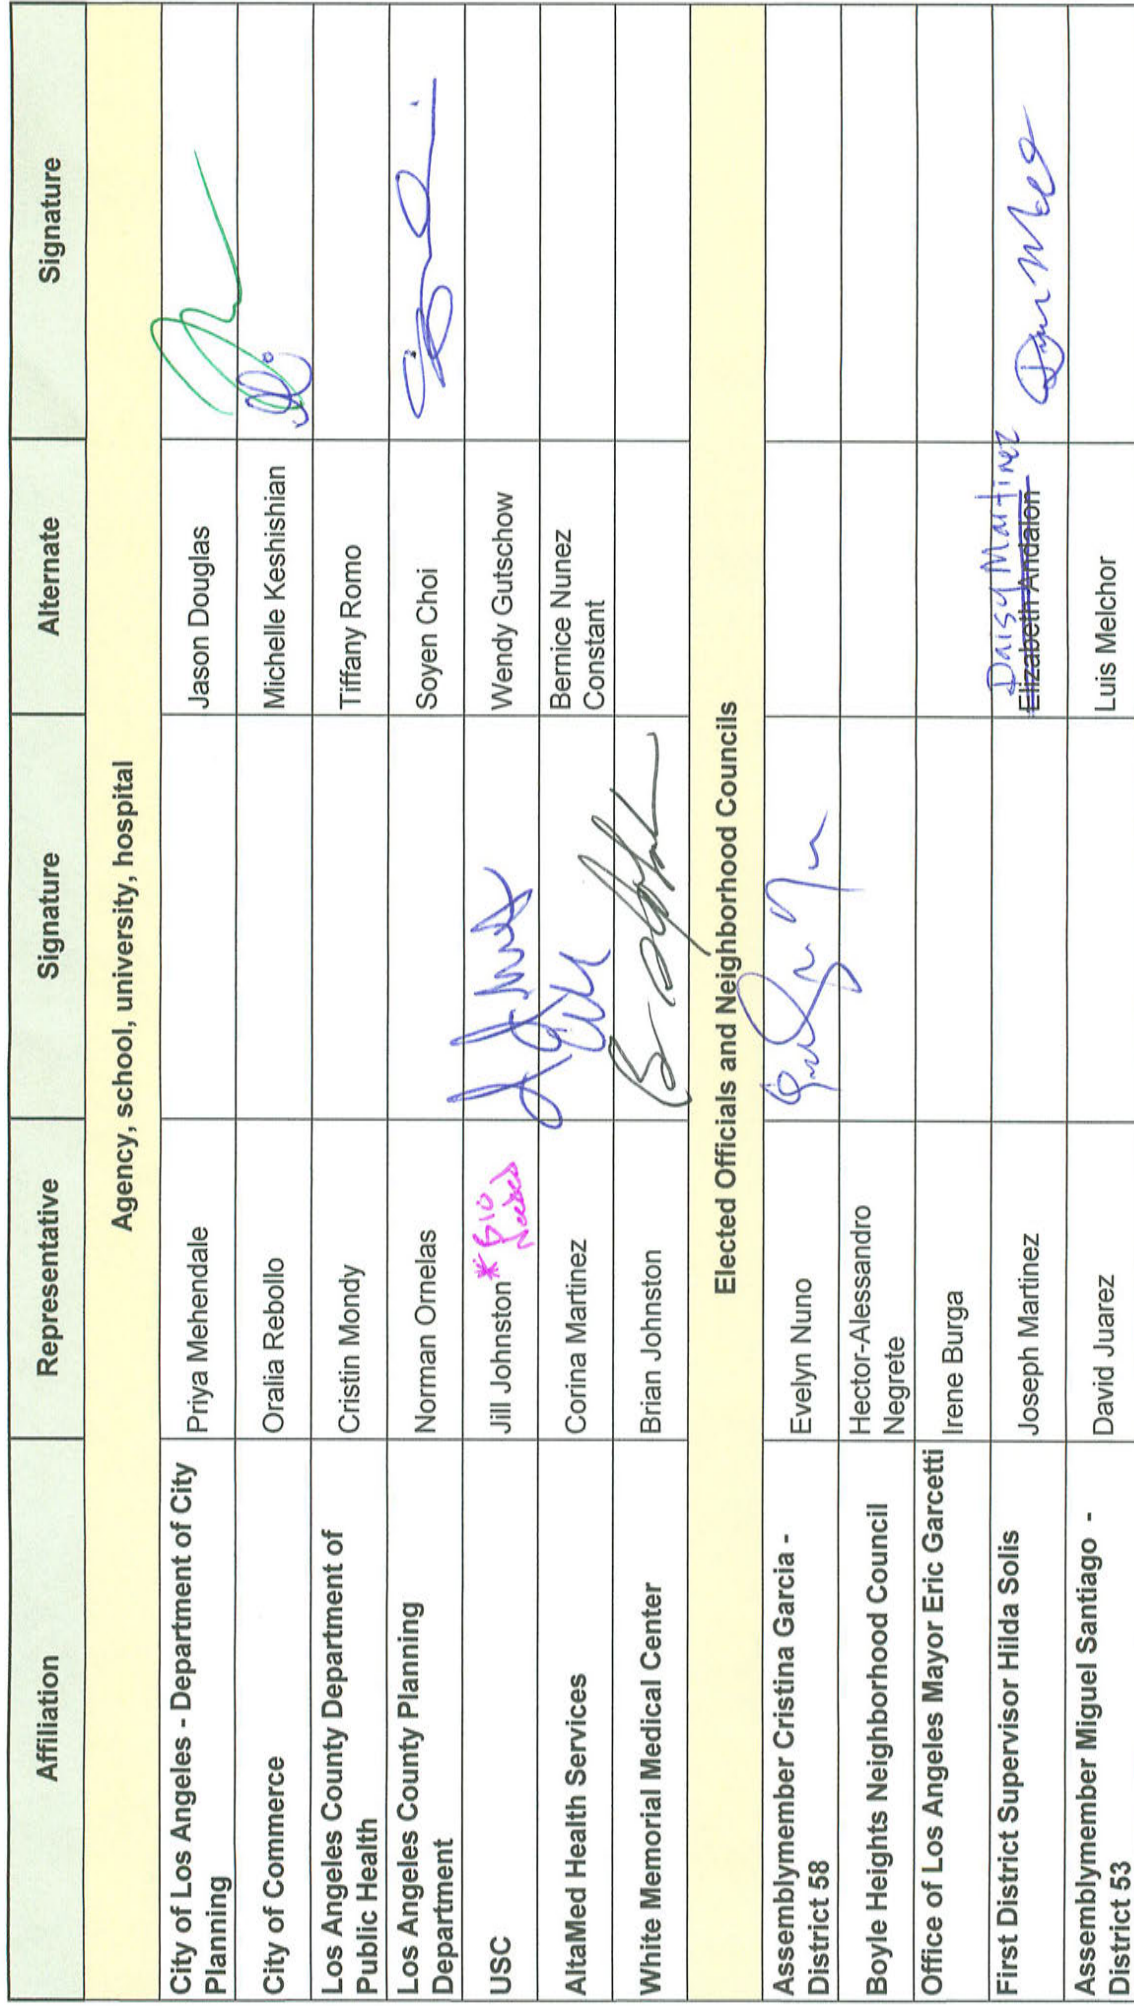 Affiliation Representative Signature Alternate Signature
Agency, school, university, hospital
City of Los Angeles - Department of City Planning Priya Mehendale Jason Douglas
City of Commerce Oralia Rebollo Michelle Keshishian
Los Angeles County Department of Public Health Cristin Mondy Tiffany Romo
Los Angeles County Planning Department Norman Ornelas Soyen Choi
USC Jill Johnston * Bio Needed Wendy Gutschow
AltaMed Health Services Corina Martinez Bernice Nunez Constant
White Memorial Medical Center Brian Johnston
Elected Officials and Neighborhood Councils
Assemblymember Cristina Garcia - District 58 Evelyn Nuno
Boyle Heights Neighborhood Council Hector-Alessandro Negrete
Office of Los Angeles Mayor Eric Garcetti Irene Burga
First District Supervisor Hilda Solis Joseph Martinez Daisy Martinez Elizabeth Andalon
Assemblymember Miguel Santiago - District 53 David Juarez Luis Melchor